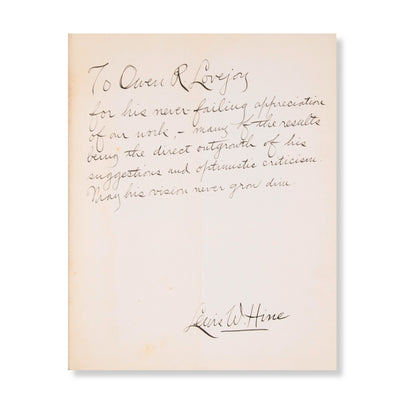 To Owen R Lovejoy
for his never-failing appreciation
of our work, – many of the results
being the direct outgrowth of his
suggestions and optimistic criticism.
May his vision never grow dim.
Lewis W. Hine